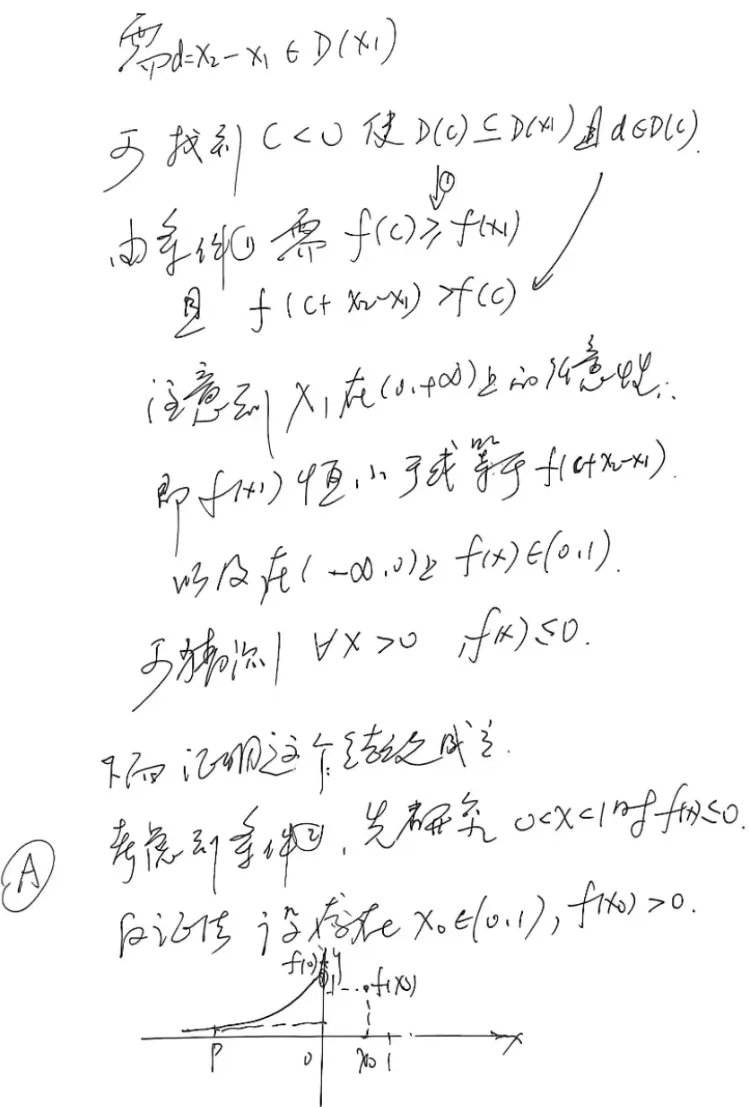 需d=x₂-x₁∈D(x₁)
可找到 C<0 使 D(c)⊆D(x₁)且d∈D(c).
①
由条件① 需 f(c)≥f(x₁)
且 f(c+x₂-x₁)>f(c)
注意到 x₁在(0,+∞)上的任意性.
即 f(x₁) 恒小于或等于 f(c+x₂-x₁).
以及在(-∞,0)上 f(x)∈(0,1).
可猜测 ∀x>0, f(x)≤0.
下面证明这个结论成立.
Ⓐ 考虑到条件②, 先研究 0<x<1时 f(x)≤0.
反证法 设存在 x₀∈(0,1), f(x₀)>0.
f(0) y
1 f(x₀)
P 0 x₀ 1 x